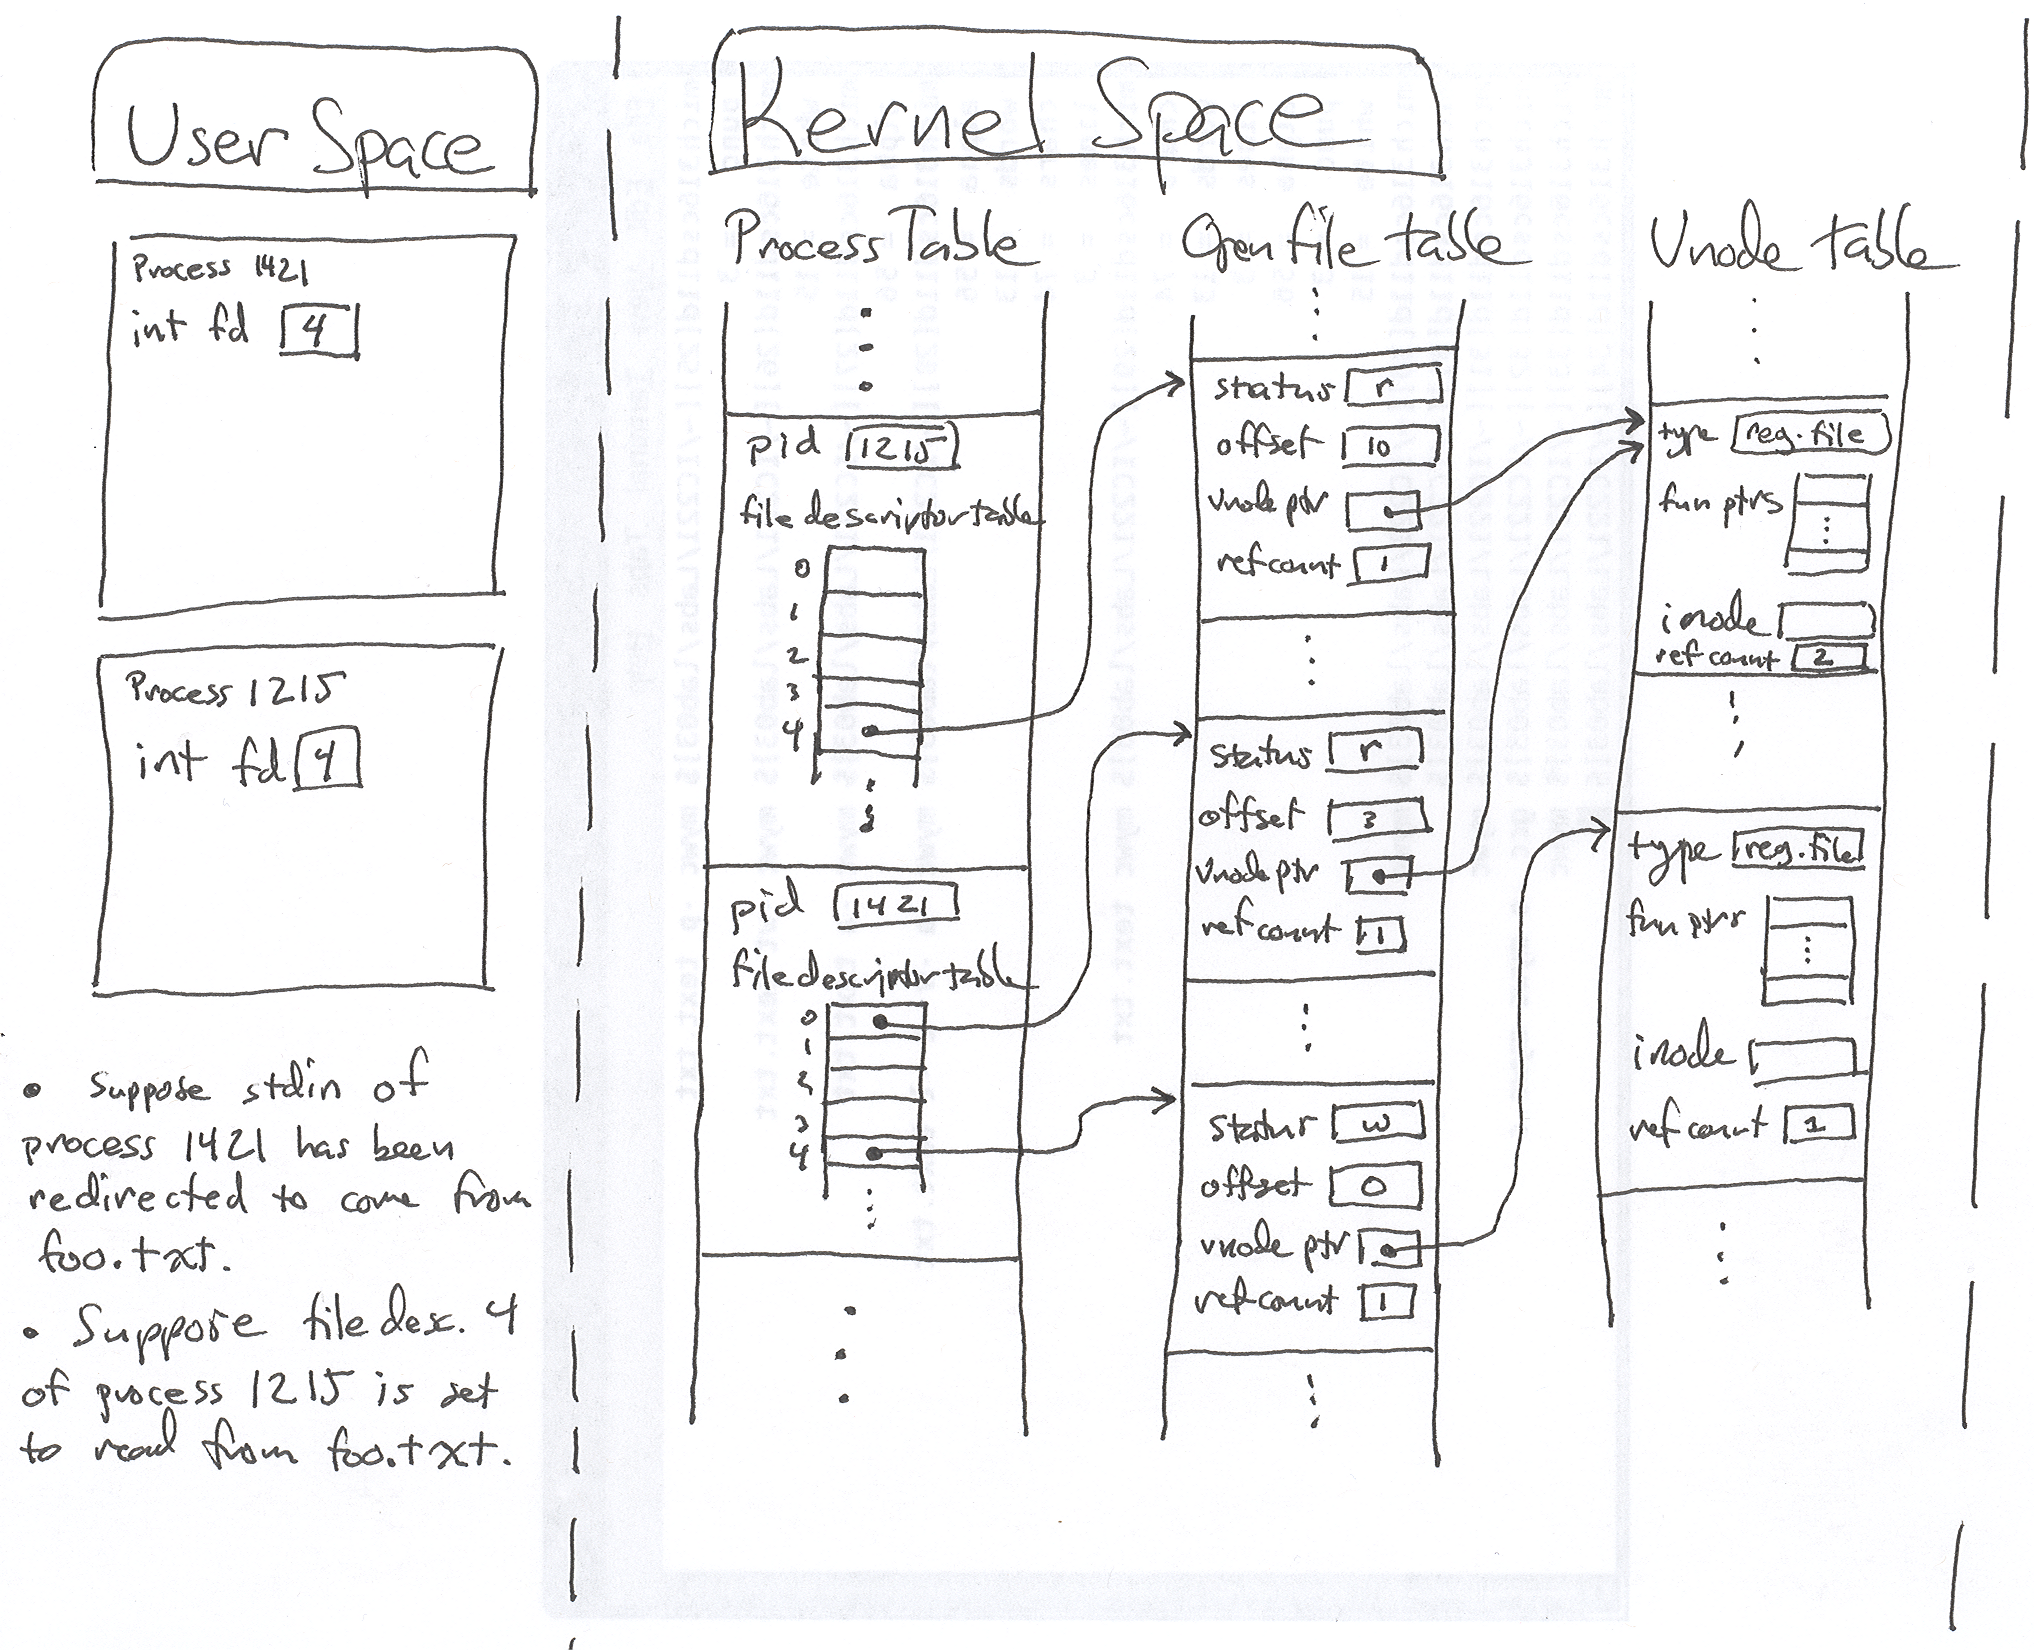 User Space
Process 1421
int fd 4
Process 1215
int fd 4
• Suppose stdin of
process 1421 has been
redirected to come from
foo.txt.
• Suppose file desc. 4
of process 1215 is set
to read from foo.txt.
Kernel Space
Process Table
pid 1215
file descriptor table
0
1
2
3
4
pid 1421
file descriptor table
0
1
2
3
4
Open file table
status r
offset 10
vnode ptr
ref count 1
status r
offset 3
vnode ptr
ref count 1
status w
offset 0
vnode ptr
ref count 1
Vnode table
type reg. file
fun ptrs
inode
ref count 2
type reg. file
fun ptrs
inode
ref count 1